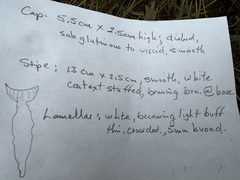 Cap- 5.5cm x 2.5cm high; dished,
subglutinous to viscid, smooth
Stipe; 13 cm x 2.5cm, smooth, white
context stuffed, bruising brn. @ base
Lamellae; white, bruising light buff
thin, crowded, 5mm broad.